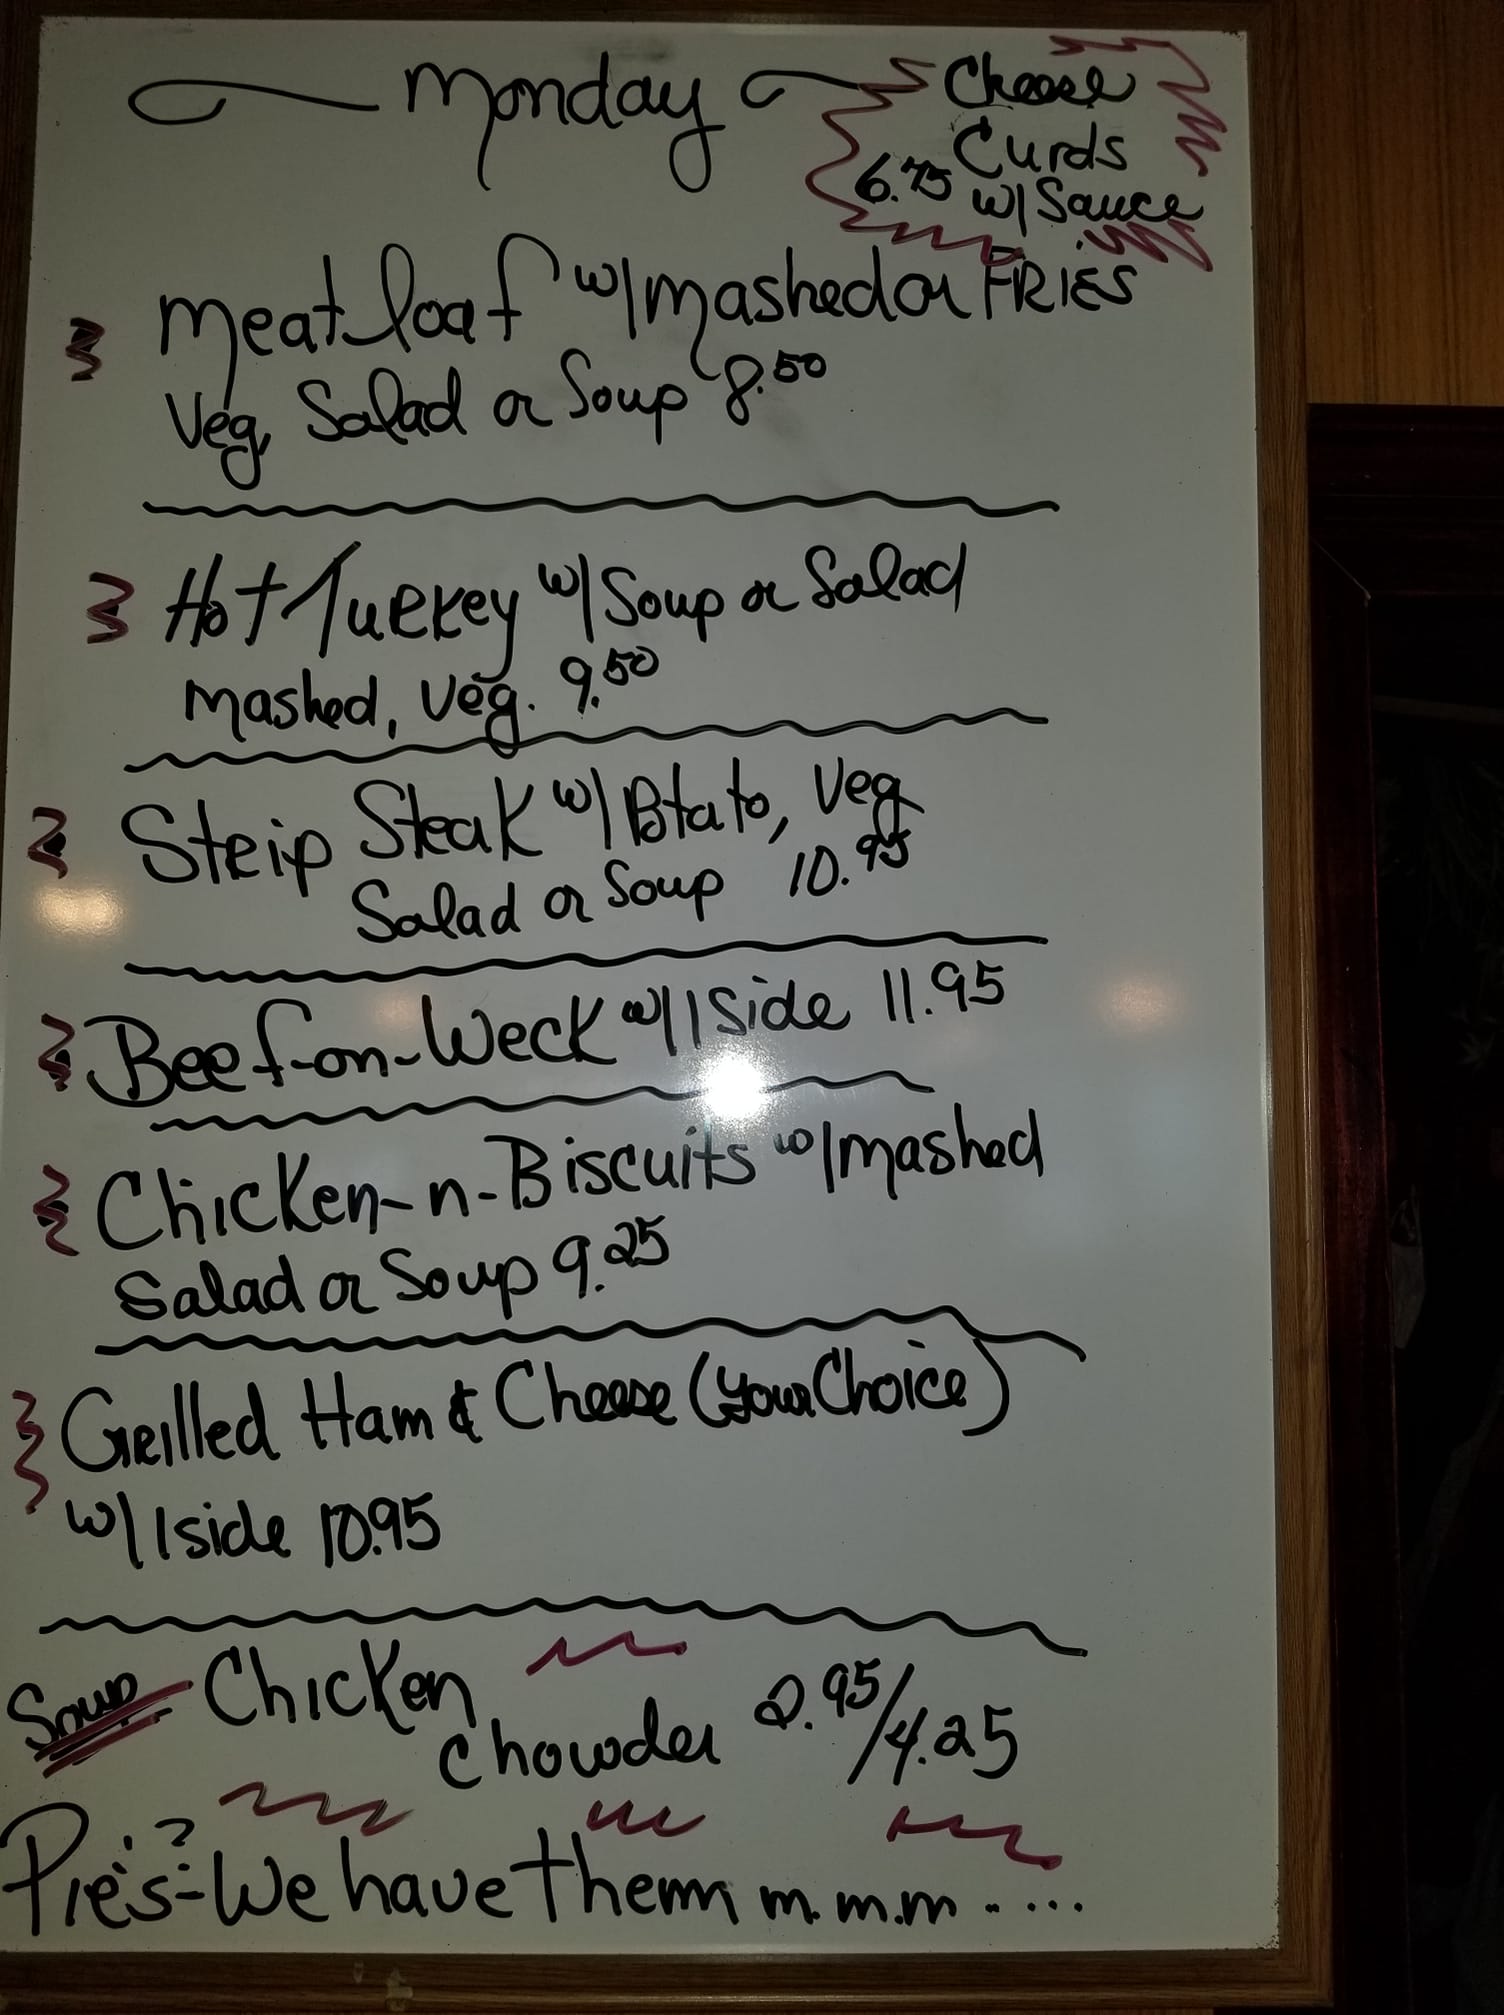 Monday
Cheese
Curds
6.75 w/ Sauce
Meatloaf w/ mashed or FRIES
Veg, Salad or Soup 8.50
Hot Turkey w/ Soup or Salad
mashed, Veg. 9.50
Strip Steak w/ Potato, Veg
Salad or Soup 10.95
Beef-on-Weck w/ 1 Side 11.95
Chicken-n-Biscuits w/ mashed
Salad or Soup 9.25
Grilled Ham & Cheese (your Choice)
w/ 1 side 10.95
Soup Chicken
Chowder 2.95/4.25
Pie's?- We have them m.m.m.....